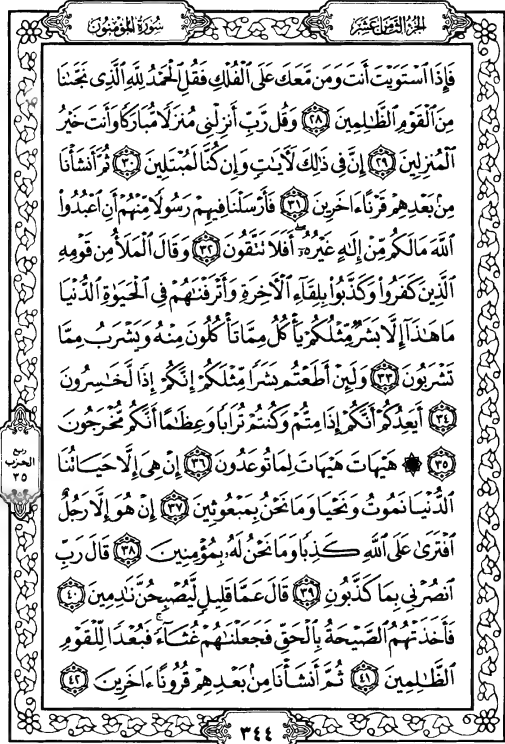 الجزء الثامن عشر
سورة المؤمنون
فَإِذَا ٱسْتَوَيْتَ أَنتَ وَمَن مَّعَكَ عَلَى ٱلْفُلْكِ فَقُلِ ٱلْحَمْدُ لِلَّهِ ٱلَّذِى نَجَّىٰنَا
مِنَ ٱلْقَوْمِ ٱلظَّٰلِمِينَ ٢٨ وَقُل رَّبِّ أَنزِلْنِى مُنزَلًا مُّبَارَكًا وَأَنتَ خَيْرُ
ٱلْمُنزِلِينَ ٢٩ إِنَّ فِى ذَٰلِكَ لَءَايَٰتٍ وَإِن كُنَّا لَمُبْتَلِينَ ٣٠ ثُمَّ أَنشَأْنَا
مِنۢ بَعْدِهِمْ قَرْنًا ءَاخَرِينَ ٣١ فَأَرْسَلْنَا فِيهِمْ رَسُولًا مِّنْهُمْ أَنِ ٱعْبُدُوا۟
ٱللَّهَ مَا لَكُم مِّنْ إِلَٰهٍ غَيْرُهُۥٓ أَفَلَا تَتَّقُونَ ٣٢ وَقَالَ ٱلْمَلَأُ مِن قَوْمِهِ
ٱلَّذِينَ كَفَرُوا۟ وَكَذَّبُوا۟ بِلِقَآءِ ٱلْءَاخِرَةِ وَأَتْرَفْنَٰهُمْ فِى ٱلْحَيَوٰةِ ٱلدُّنْيَا
مَا هَٰذَآ إِلَّا بَشَرٌ مِّثْلُكُمْ يَأْكُلُ مِمَّا تَأْكُلُونَ مِنْهُ وَيَشْرَبُ مِمَّا
تَشْرَبُونَ ٣٣ وَلَئِنْ أَطَعْتُم بَشَرًا مِّثْلَكُمْ إِنَّكُمْ إِذًا لَّخَٰسِرُونَ
٣٤ أَيَعِدُكُمْ أَنَّكُمْ إِذَا مِتُّمْ وَكُنتُمْ تُرَابًا وَعِظَٰمًا أَنَّكُم مُّخْرَجُونَ
٣٥ ۞ هَيْهَاتَ هَيْهَاتَ لِمَا تُوعَدُونَ ٣٦ إِنْ هِىَ إِلَّا حَيَاتُنَا
ٱلدُّنْيَا نَمُوتُ وَنَحْيَا وَمَا نَحْنُ بِمَبْعُوثِينَ ٣٧ إِنْ هُوَ إِلَّا رَجُلٌ
ٱفْتَرَىٰ عَلَى ٱللَّهِ كَذِبًا وَمَا نَحْنُ لَهُۥ بِمُؤْمِنِينَ ٣٨ قَالَ رَبِّ
ٱنصُرْنِى بِمَا كَذَّبُونِ ٣٩ قَالَ عَمَّا قَلِيلٍ لَّيُصْبِحُنَّ نَٰدِمِينَ ٤٠
فَأَخَذَتْهُمُ ٱلصَّيْحَةُ بِٱلْحَقِّ فَجَعَلْنَٰهُمْ غُثَآءً ۚ فَبُعْدًا لِّلْقَوْمِ
ٱلظَّٰلِمِينَ ٤١ ثُمَّ أَنشَأْنَا مِنۢ بَعْدِهِمْ قُرُونًا ءَاخَرِينَ ٤٢
ربع
الحزب
٣٥
٣٤٤